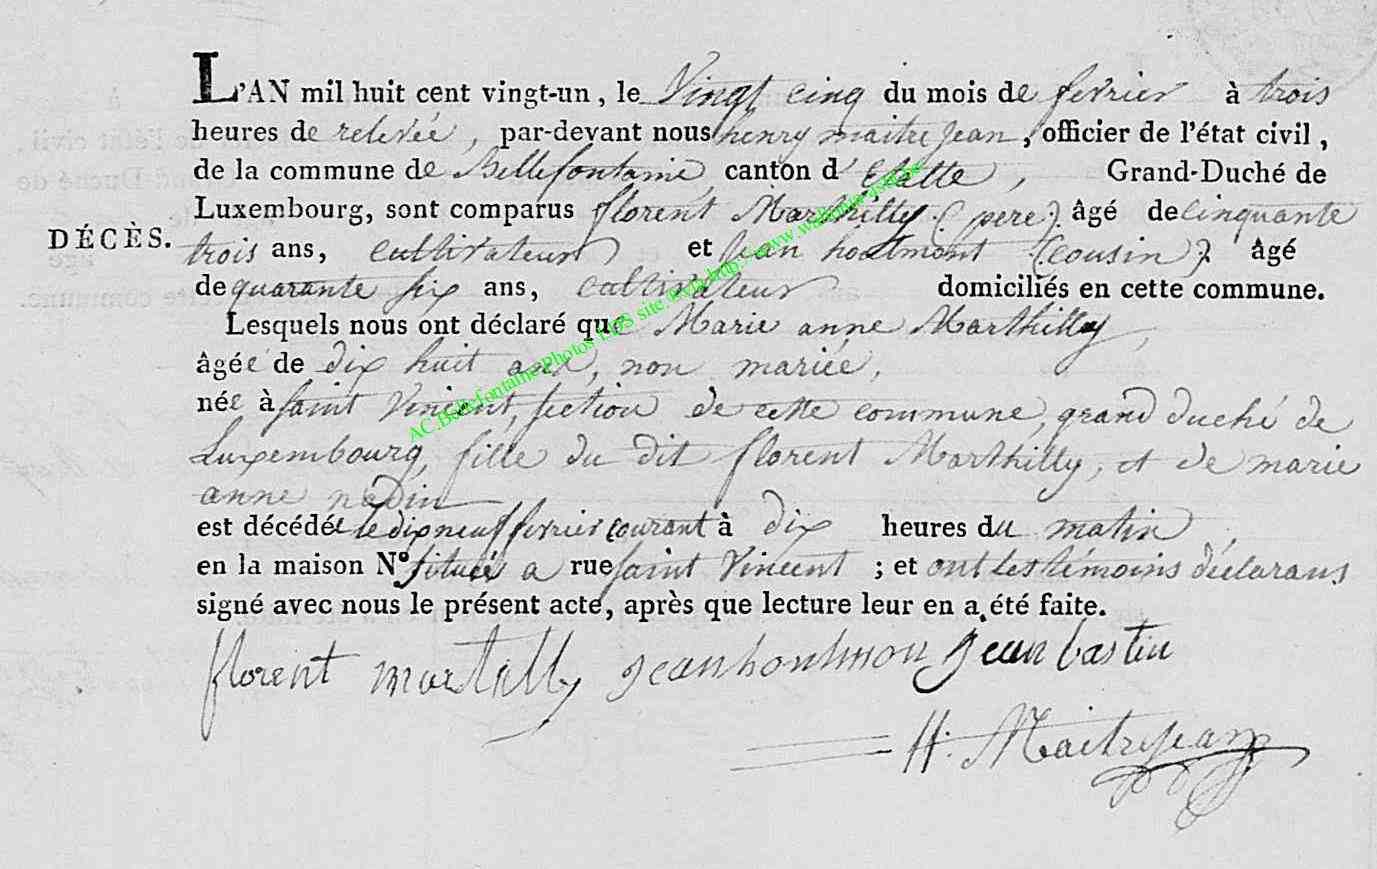 L'AN mil huit cent vingt-un, le Vingt cinq du mois de fevrier à trois
heures de relevée, par-devant nous henry maitrejean, officier de l'état civil,
de la commune de Bellefontaine, canton d'Etalle, Grand-Duché de
Luxembourg, sont comparus florent Marthilly (pere). âgé de cinquante
DÉCÈS.
trois ans, cultivateur et jean houtmont (cousin) âgé
de quarante six ans, cultivateur domiciliés en cette commune.
Lesquels nous ont déclaré que Marie anne Marthilly
âgée de dix huit ans, non mariée,
née à saint Vincent, section de cette commune, grand duché de
Luxembourg, fille du dit florent Marthilly, et de marie
anne nedin
est décédée le dix neuf fevrier courant à dix heures du matin,
en la maison N° située a rue saint Vincent ; et ont les témoins déclarans
signé avec nous le présent acte, après que lecture leur en a été faite.
florent martilly jean houtmon jean bastin
H. Maitrejean
AC.Bellefontaine Photos EDS site: www.